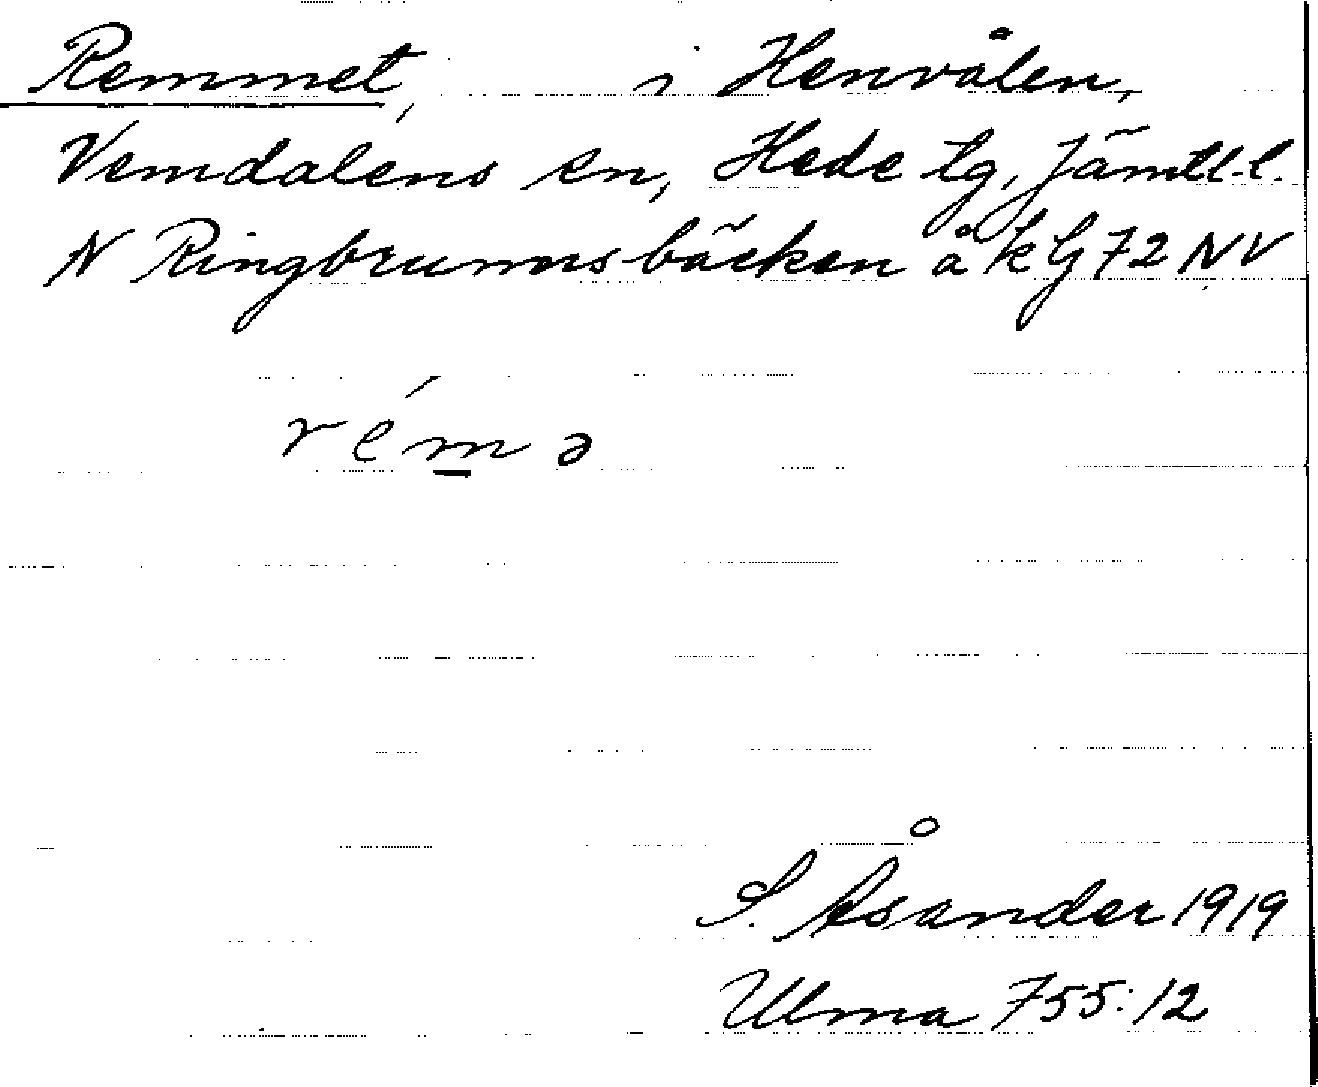 Remmet, i Henvålen,
Vemdalens sn, Hede tg, Jämtl. l.
N Ringbrunnsbäcken å kG 72 NV
rém̲ə
S. Åsander 1919
Ulma 755:12